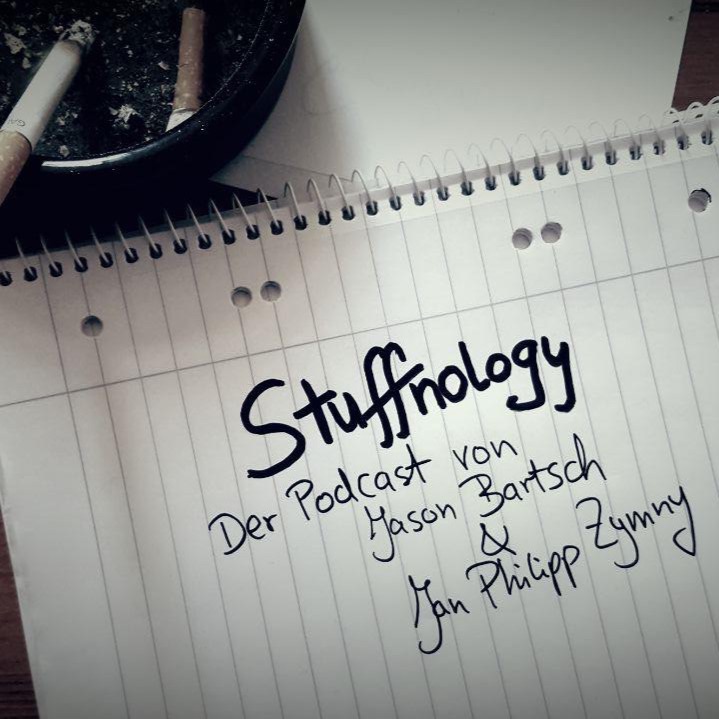 Stuffnology
Der Podcast von
Jason Bartsch
&
Jan Philipp Zymny